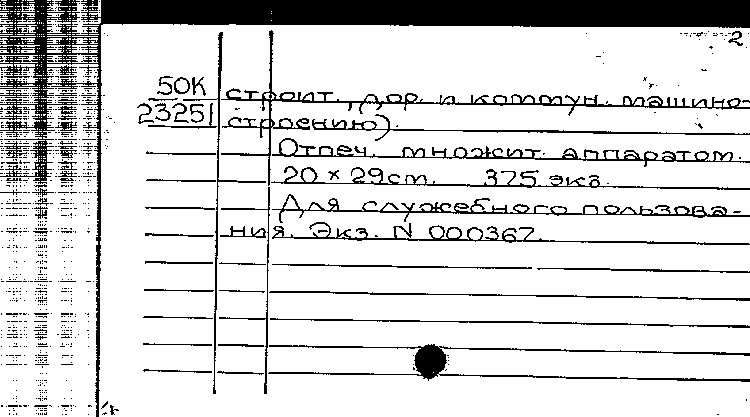 2
50К строит., дор. и коммун. машино-
23251 строению).
Отпеч. множит. аппаратом.
20 × 29см. 375 экз.
Для служебного пользова-
ния. Экз. N 000367.